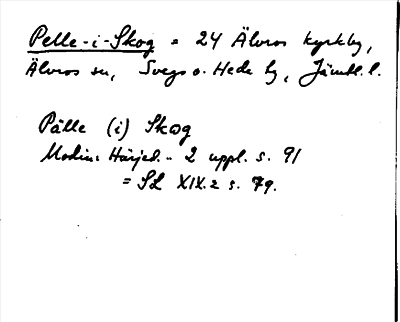 Pelle-i-Skog = 24 Älvros kyrkby,
Älvros sn, Svegs o. Hede tg, Jämtl. l.
Pälle (i) Skog
Modin: Härjed... 2 uppl. s. 91
= SL XIX.2 s. 79.